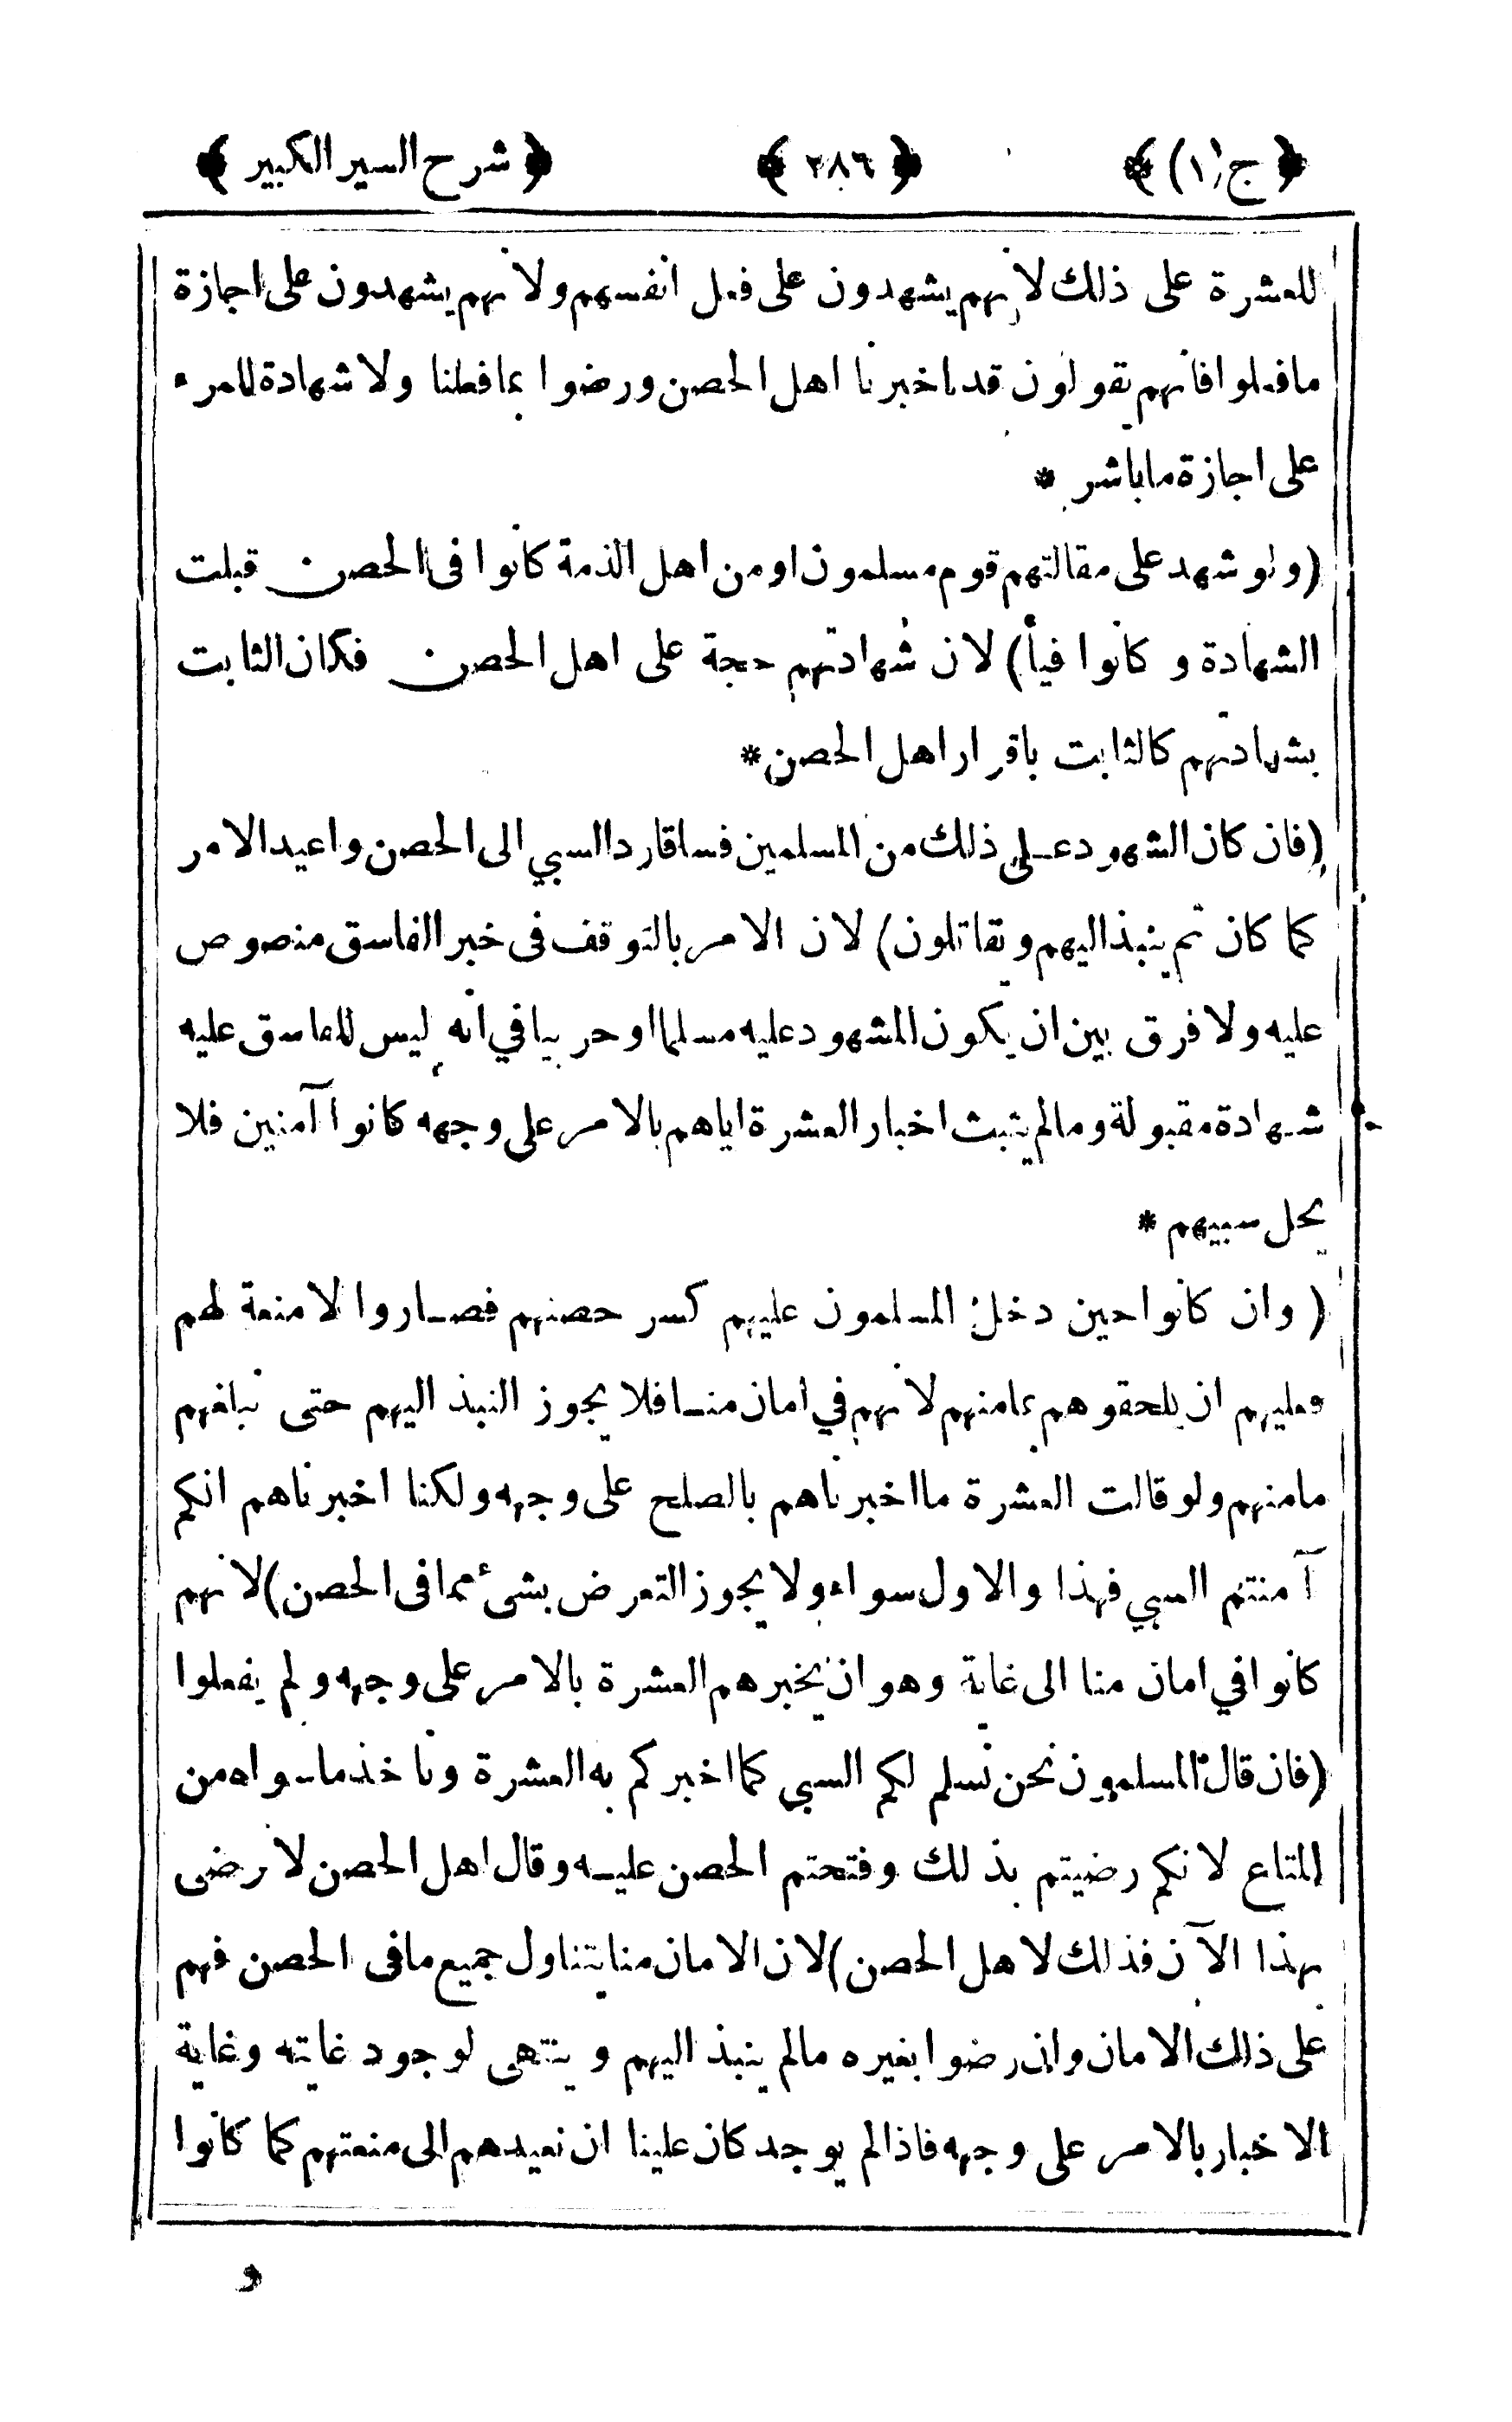 ﴿ ج (١) ﴾ ﴿ ٢٨٦ ﴾ ﴿ شرح السير الكبير ﴾
للعشرة على ذلك لانهم يشهدون على فعل انفسهم ولانهم يشهدون على اجازة
مافعلوا فانهم يقولون قد اخبرنا اهل الحصن ورضوا بما فعلنا ولا شهادة للمرء
على اجازة ماباشر *
(ولو شهد على مقالتهم قوم مسلمون او من اهل الذمة كانوا فى الحصن قبلت
الشهادة و كانوا فيأ) لان شهادتهم حجة على اهل الحصن فكان الثابت
بشهادتهم كالثابت باقرار اهل الحصن *
(فان كان الشهود على ذلك من المسلمين فساقا رد السبي الى الحصن واعيد الامر
كما كان ثم ينبذ اليهم ويقاتلون) لان الامر بالتوقف فى خبر الفاسق منصوص
عليه ولا فرق بين ان يكون المشهود عليه مسلما او حربيا في انه ليس للفاسق عليه
شهادة مقبولة ومالم يثبت اخبار العشرة اياهم بالامر على وجهه كانوا آمنين فلا
يحل سبيهم *
( وان كانوا حين دخل المسلمون عليهم كسر حصنهم فصاروا لا منعة لهم
فعليهم ان يلحقوهم بمامنهم لانهم في امان منا فلا يجوز النبذ اليهم حتى نبلغهم
مامنهم ولو قالت العشرة ما اخبرناهم بالصلح على وجهه ولكنا اخبرناهم انكم
آمنتم السبي فهذا والاول سواء ولا يجوز التعرض بشىء مما فى الحصن) لانهم
كانوا في امان منا الى غاية وهو ان يخبرهم العشرة بالامر على وجهه ولم يفعلوا
(فان قال المسلمون نحن نسلم لكم السبي كما اخبركم به العشرة وناخذ ماسواه من
المتاع لانكم رضيتم بذلك وفتحتم الحصن عليه وقال اهل الحصن لا نرضى
بهذا الآن فذلك لاهل الحصن) لان الامان منا يتناول جميع مافى الحصن فهم
على ذلك الامان وان رضوا بغيره مالم ينبذ اليهم و ينتهى لوجود غايته وغاية
الاخبار بالامر على وجهه فاذا لم يوجد كان علينا ان نعيدهم الى منعتهم كما كانوا
و